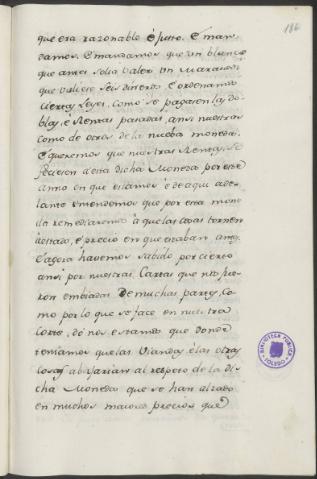 186
que era razonable e justo. E man-
damos, e mandamos que un blanco
que antes solia valer un Maravedi
que valiese seis dineros e ordenamos
ciertas Leyes, como se pagasen las do-
blas, e Rentas pasadas, ansi nuestras
como de otros de la nueba moneda.
E queremos que nuestras Rentas, se
ficiesen a esta dicha Moneda por este
anno en que estamos e de aqui ade-
lante entendemos que por esta mone-
da remediaremos a que las cosas tornen
a estado, e precio en que estaban antes,
e agora havemos sabido por cierto
ansi por nuestras Cartas que nos fue-
ron embiadas De muchas partes, Co-
mo por lo que se face en nuestra
Corte, do nos estamos que donde
teniamos que las Viandas e las otras
cosas abajarian al respeto de la di-
cha Moneda que se han alzado
en muchos maiores precios que
BIBLIOTECA PUBLICA
TOLEDO